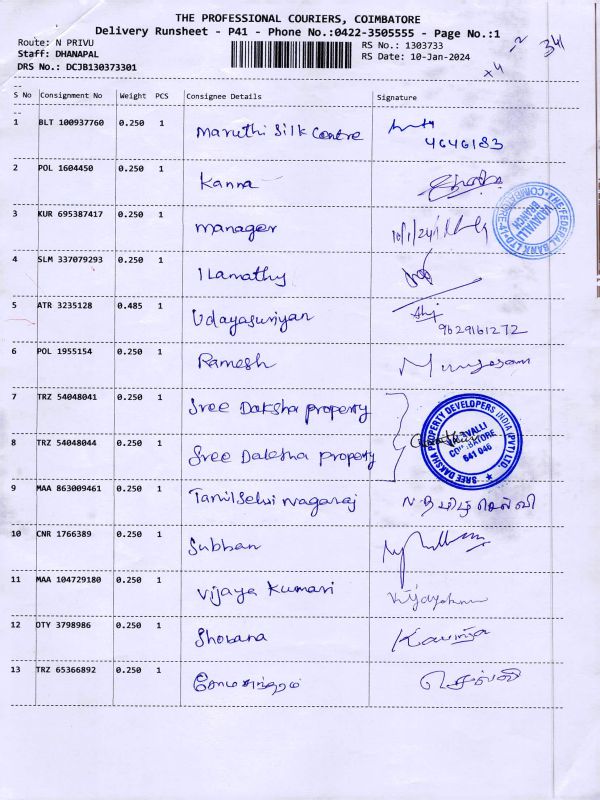 THE PROFESSIONAL COURIERS, COIMBATORE
Delivery Runsheet - P41 - Phone No.:0422-3505555 - Page No.:1
Route: N PRIVU
RS No.: 1303733
Staff: DHANAPAL
RS Date: 10-Jan-2024
DRS No.: DCJB130373301
x4
S No Consignment No Weight PCS Consignee Details Signature
1 BLT 100937760 0.250 1 Maruthi Silk Centre
4646183
2 POL 1604450 0.250 1 Kanna
3 KUR 695387417 0.250 1 manager 10/1/24
THE FEDERAL BANK LTD. COIMBATORE-41 VADAVALLI BRANCH
4 SLM 337079293 0.250 1 Ilamathy
5 ATR 3235128 0.485 1 Udayasuriyan
9629161272
6 POL 1955154 0.250 1 Ramesh Murugesan
7 TRZ 54048041 0.250 1 Sree Daksha property
SREE DAKSHA PROPERTY DEVELOPERS (INDIA) (PVT) LTD. VADAVALLI COIMBATORE 641 046
8 TRZ 54048044 0.250 1 Sree Daksha property
9 MAA 863009461 0.250 1 Tamil Selvi nagaraj N.தமிழ்செல்வி
10 CNR 1766389 0.250 1 Subban
11 MAA 104729180 0.250 1 Vijaya Kumari
12 OTY 3798986 0.250 1 Shobana Kaviya
13 TRZ 65366892 0.250 1 சோமசுந்தரம் செல்வி